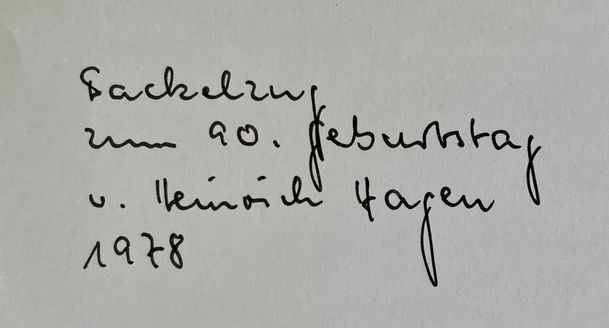 Fackelzug
zum 90. Geburtstag
v. Heinrich Hagen
1978